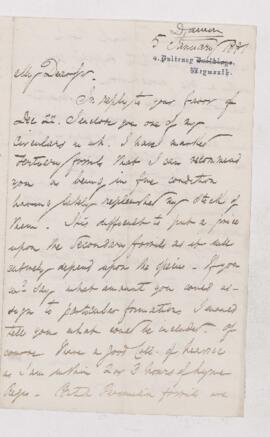 Damon
5 January 18
4. Pulteney Buildings,
Weymouth.
My Dear Sir
In reply to your favor of
Dec 22. I enclose you one of my
Circulars in wh. I have marked
Tertiary fossils that I can recommend
you as being in fine condition
having lately replenished my stock of
them. It is difficult to put a price
upon the Secondary fossils as it will
entirely depend upon the species. If you
wd. say what amount you could as-
sign to particular formations I would
tell you what could be included. Of
course I have a good Coll. of
as I am within 2 or 3 hours of Lyme
Regis. Permian fossils are